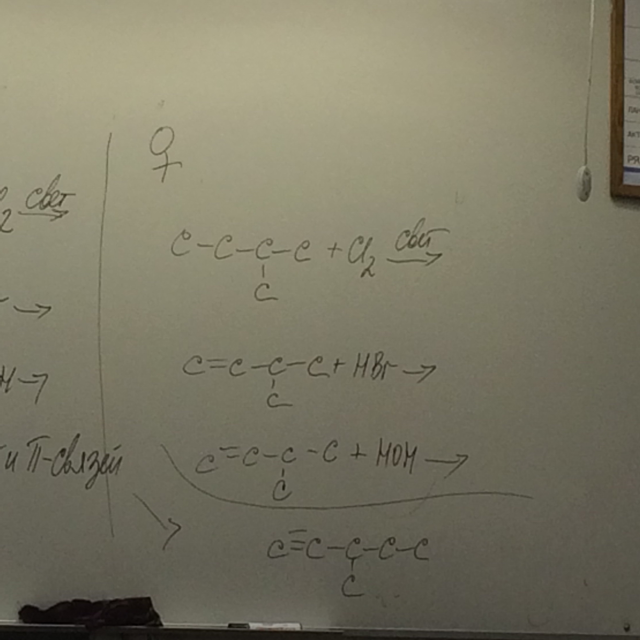 2 свет →
→
Н →
и П-связей
♀
C-C-C-C + Cl2 свет →
C
C=C-C-C + HBr →
C
C=C-C-C + HOH →
C
C≡C-C-C-C
C